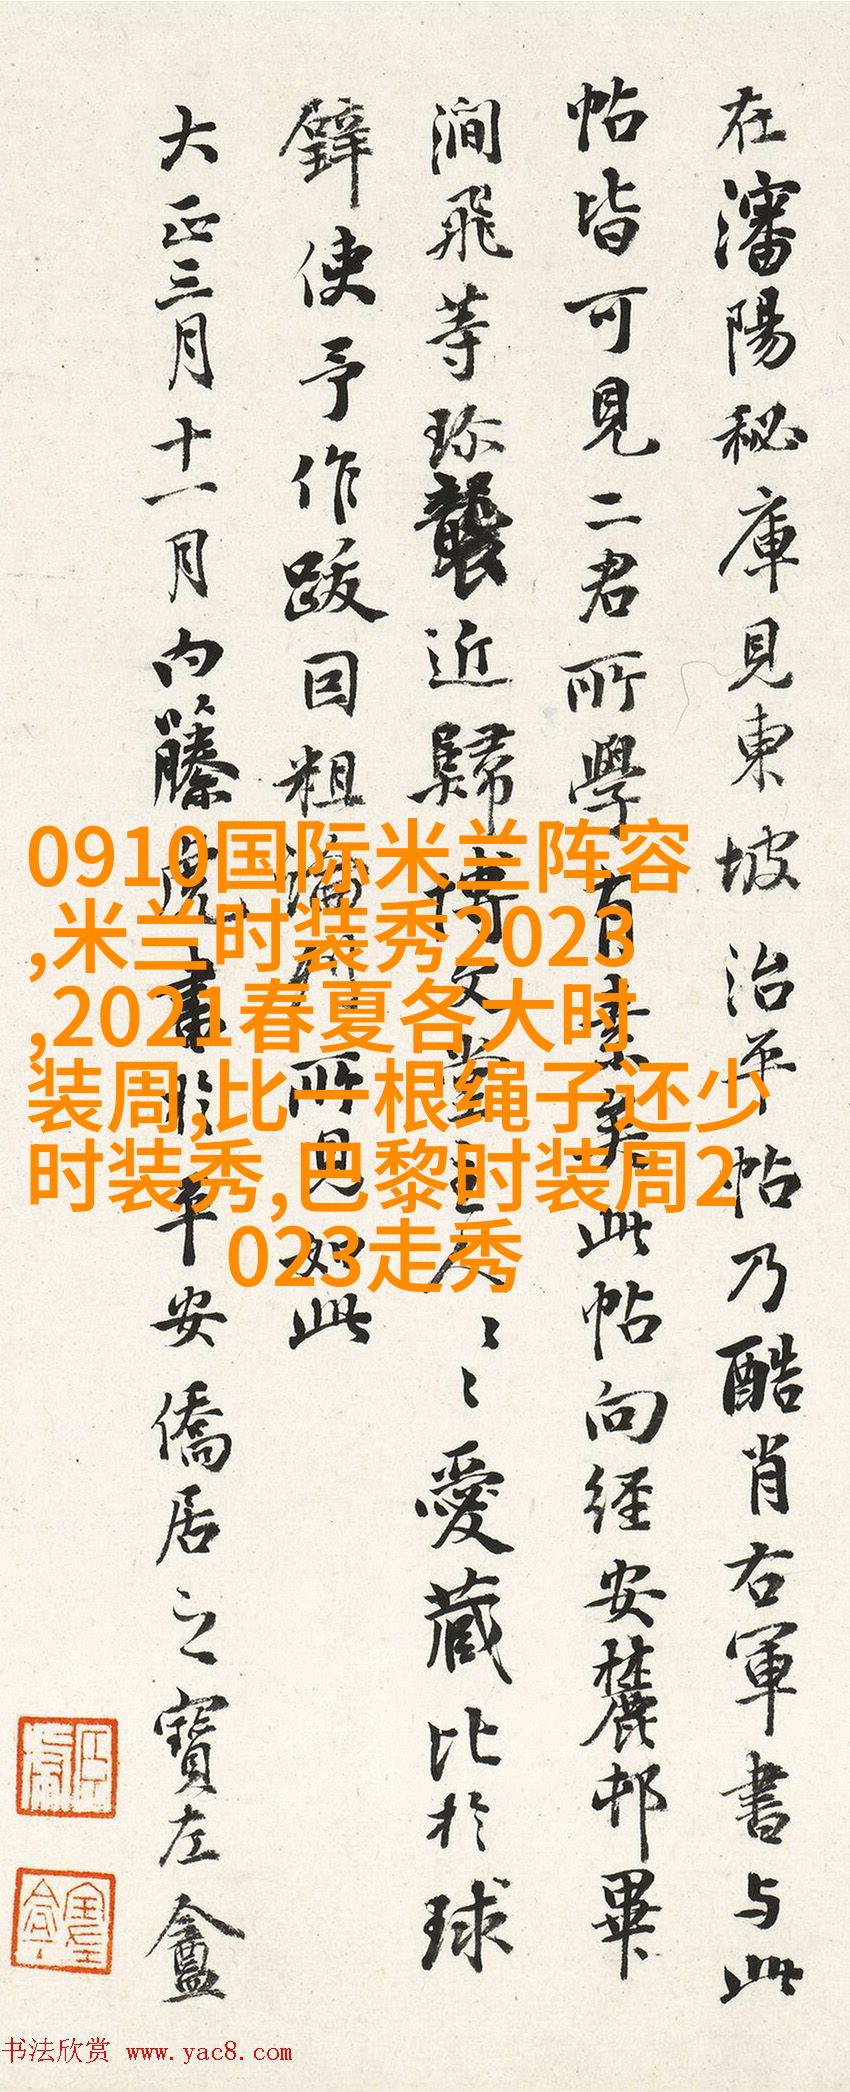 在瀋陽秘庫見東坡治平帖乃酷肖右軍書与此
帖皆可見二君所學有素矣此帖向経安麓邨畢
澗飛等珎襲近歸博文堂主人〻〻愛蔵比於球
使予作跋因粗論所見如此
大正三月十一月内藤虎書於平安僑居之寶左盦
0910国际米兰阵容
,米兰时装秀2023
,2021春夏各大时
装周,比一根绳子还少
时装秀,巴黎时装周2
023走秀
书法欣赏 www.yac8.com